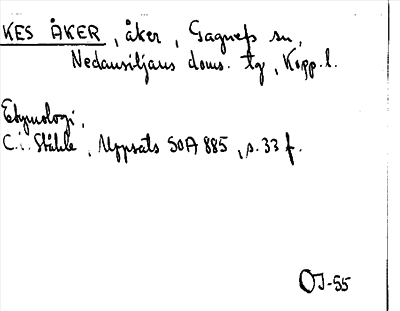 KES ÅKER, åker, Gagnefs sn,
Nedansiljans doms. tg, Kopp. l.
Etymologi,
C. i. Ståhle, Uppsats SOA 885, s. 33 f.
OJ-55